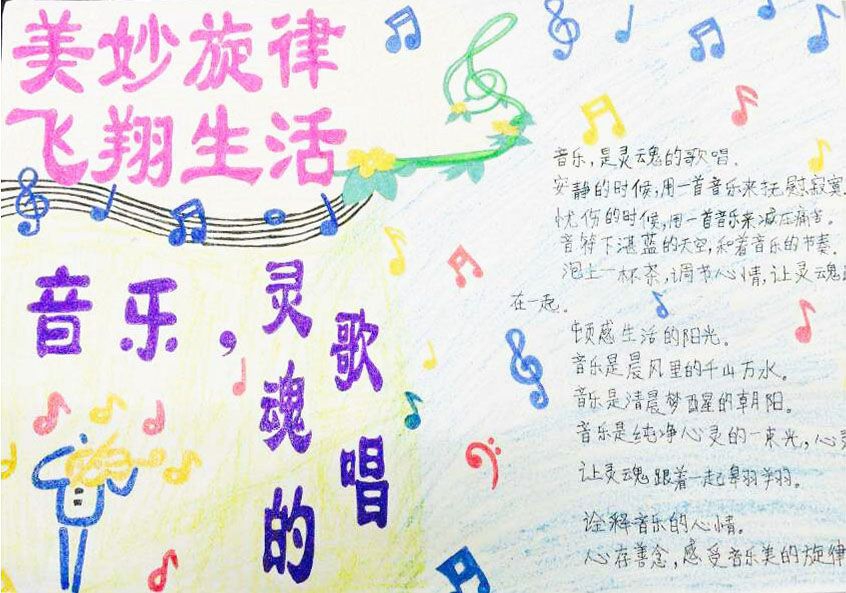 美妙旋律
飞翔生活
音乐，灵魂的歌唱
音乐，是灵魂的歌唱.
安静的时候,用一首音乐来抚慰寂寞.
忧伤的时候,用一首音乐来减压痛苦。
下湛蓝的天空,和着音乐的节奏.
泡上一杯茶,调节心情,让灵魂
在一起。
顿感生活的阳光。
音乐是晨风里的千山万水。
音乐是清晨梦醒的朝阳。
音乐是纯净心灵的一束光,心灵
让灵魂跟着一起翱翔。
诠释音乐的心情。
心存善念,感受音乐美的旋律